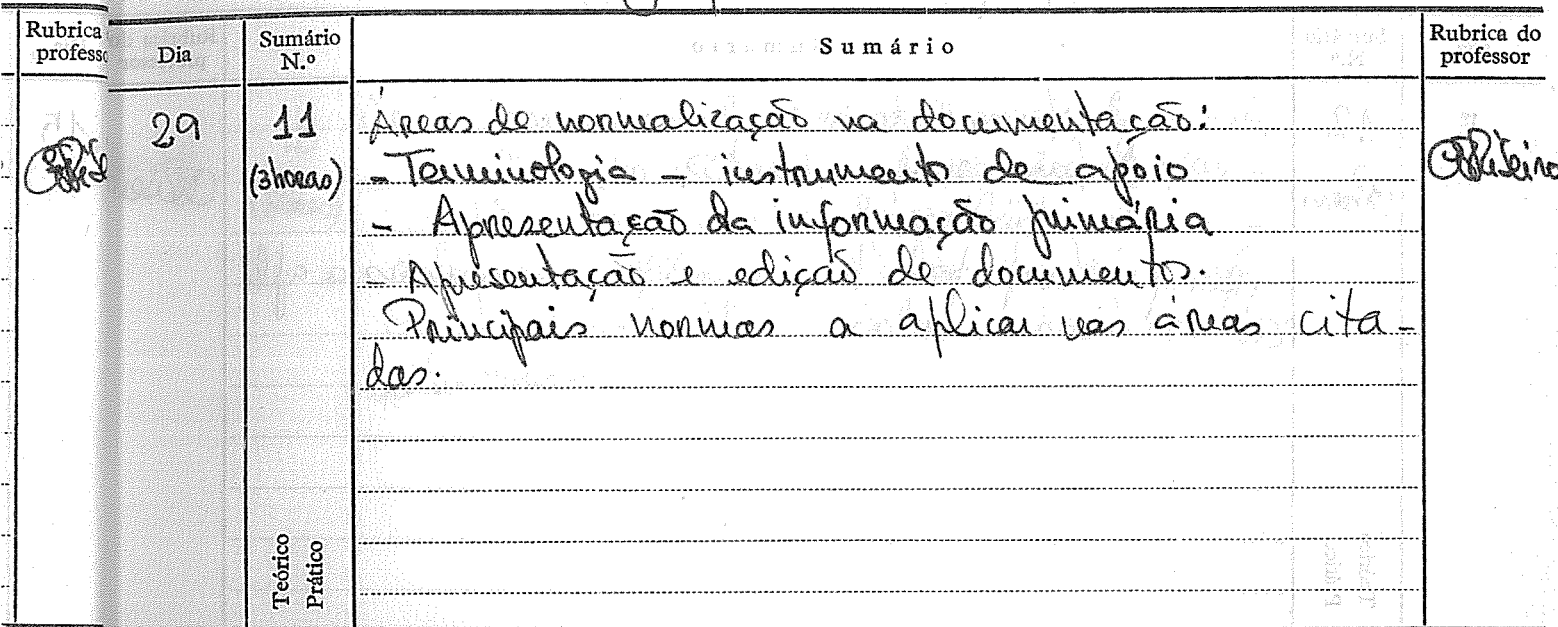 Rubrica
profess
Dia
Sumário
N.º
Sumário
Rubrica do
professor
29
11
(3 horas)
Áreas de normalização na documentação:
- Terminologia - instrumento de apoio
- Apresentação da informação primária
- Apresentação e edição de documentos.
Principais normas a aplicar nas áreas cita-
das.
Teórico
Prático